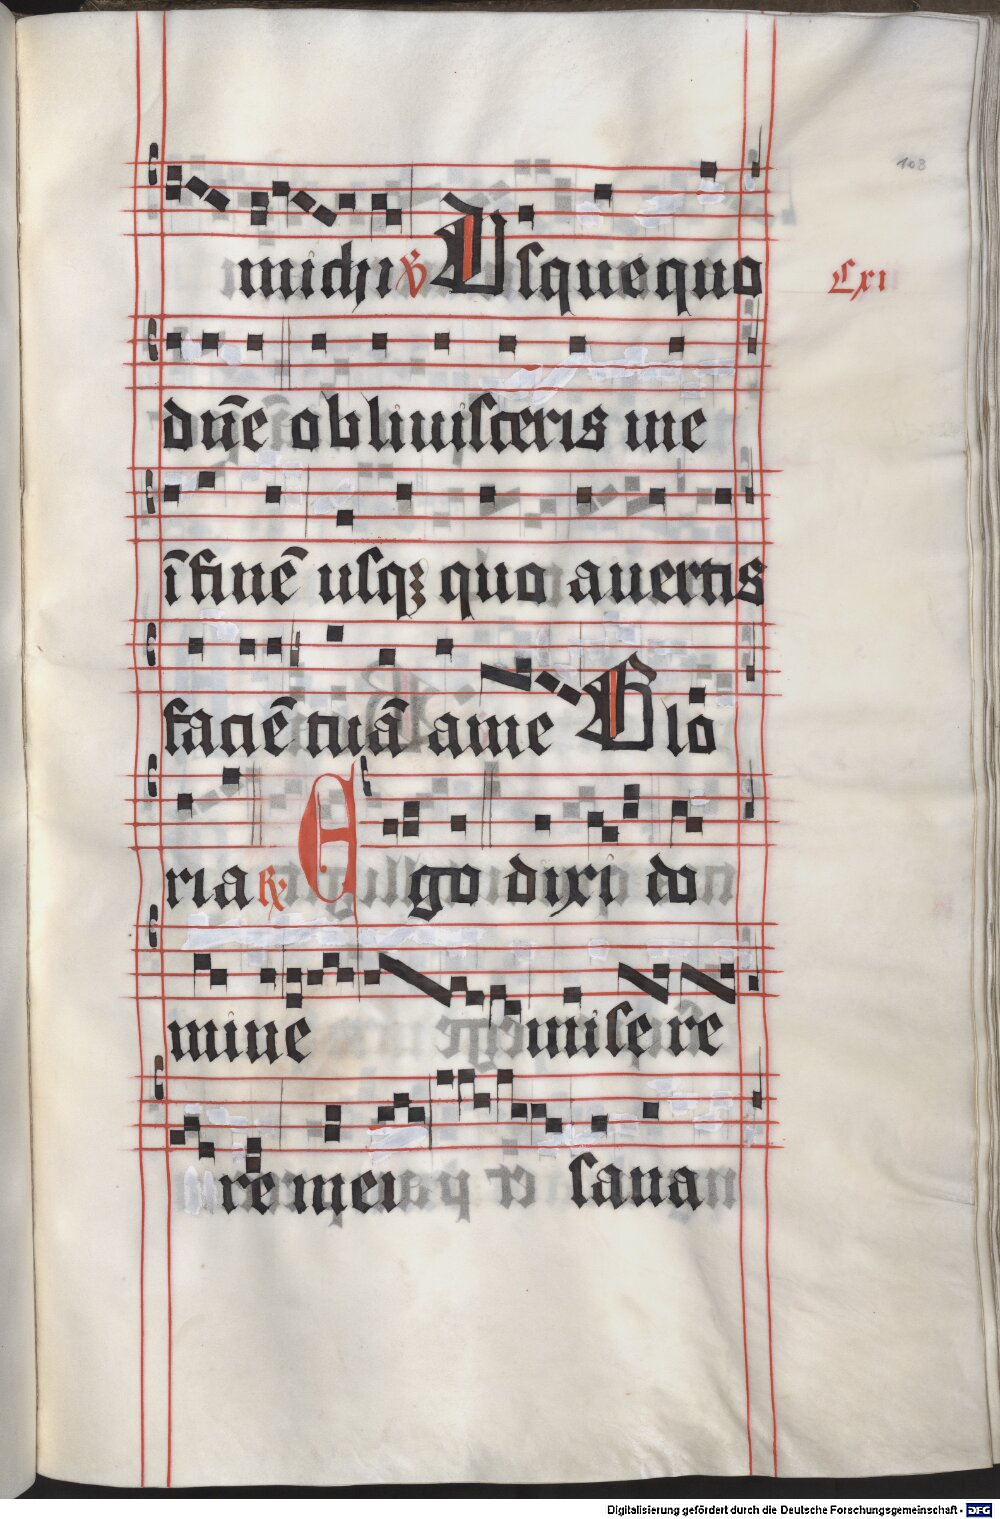 108
michi ℣ Vsquequo
Cxi
dn̄e obliuisceris me
ī finē usqꝫ quo auertis
faciē tuā a me Glo
ria ℟ Ego dixi do
mine misere
re mei sana
Digitalisierung gefördert durch die Deutsche Forschungsgemeinschaft - DFG